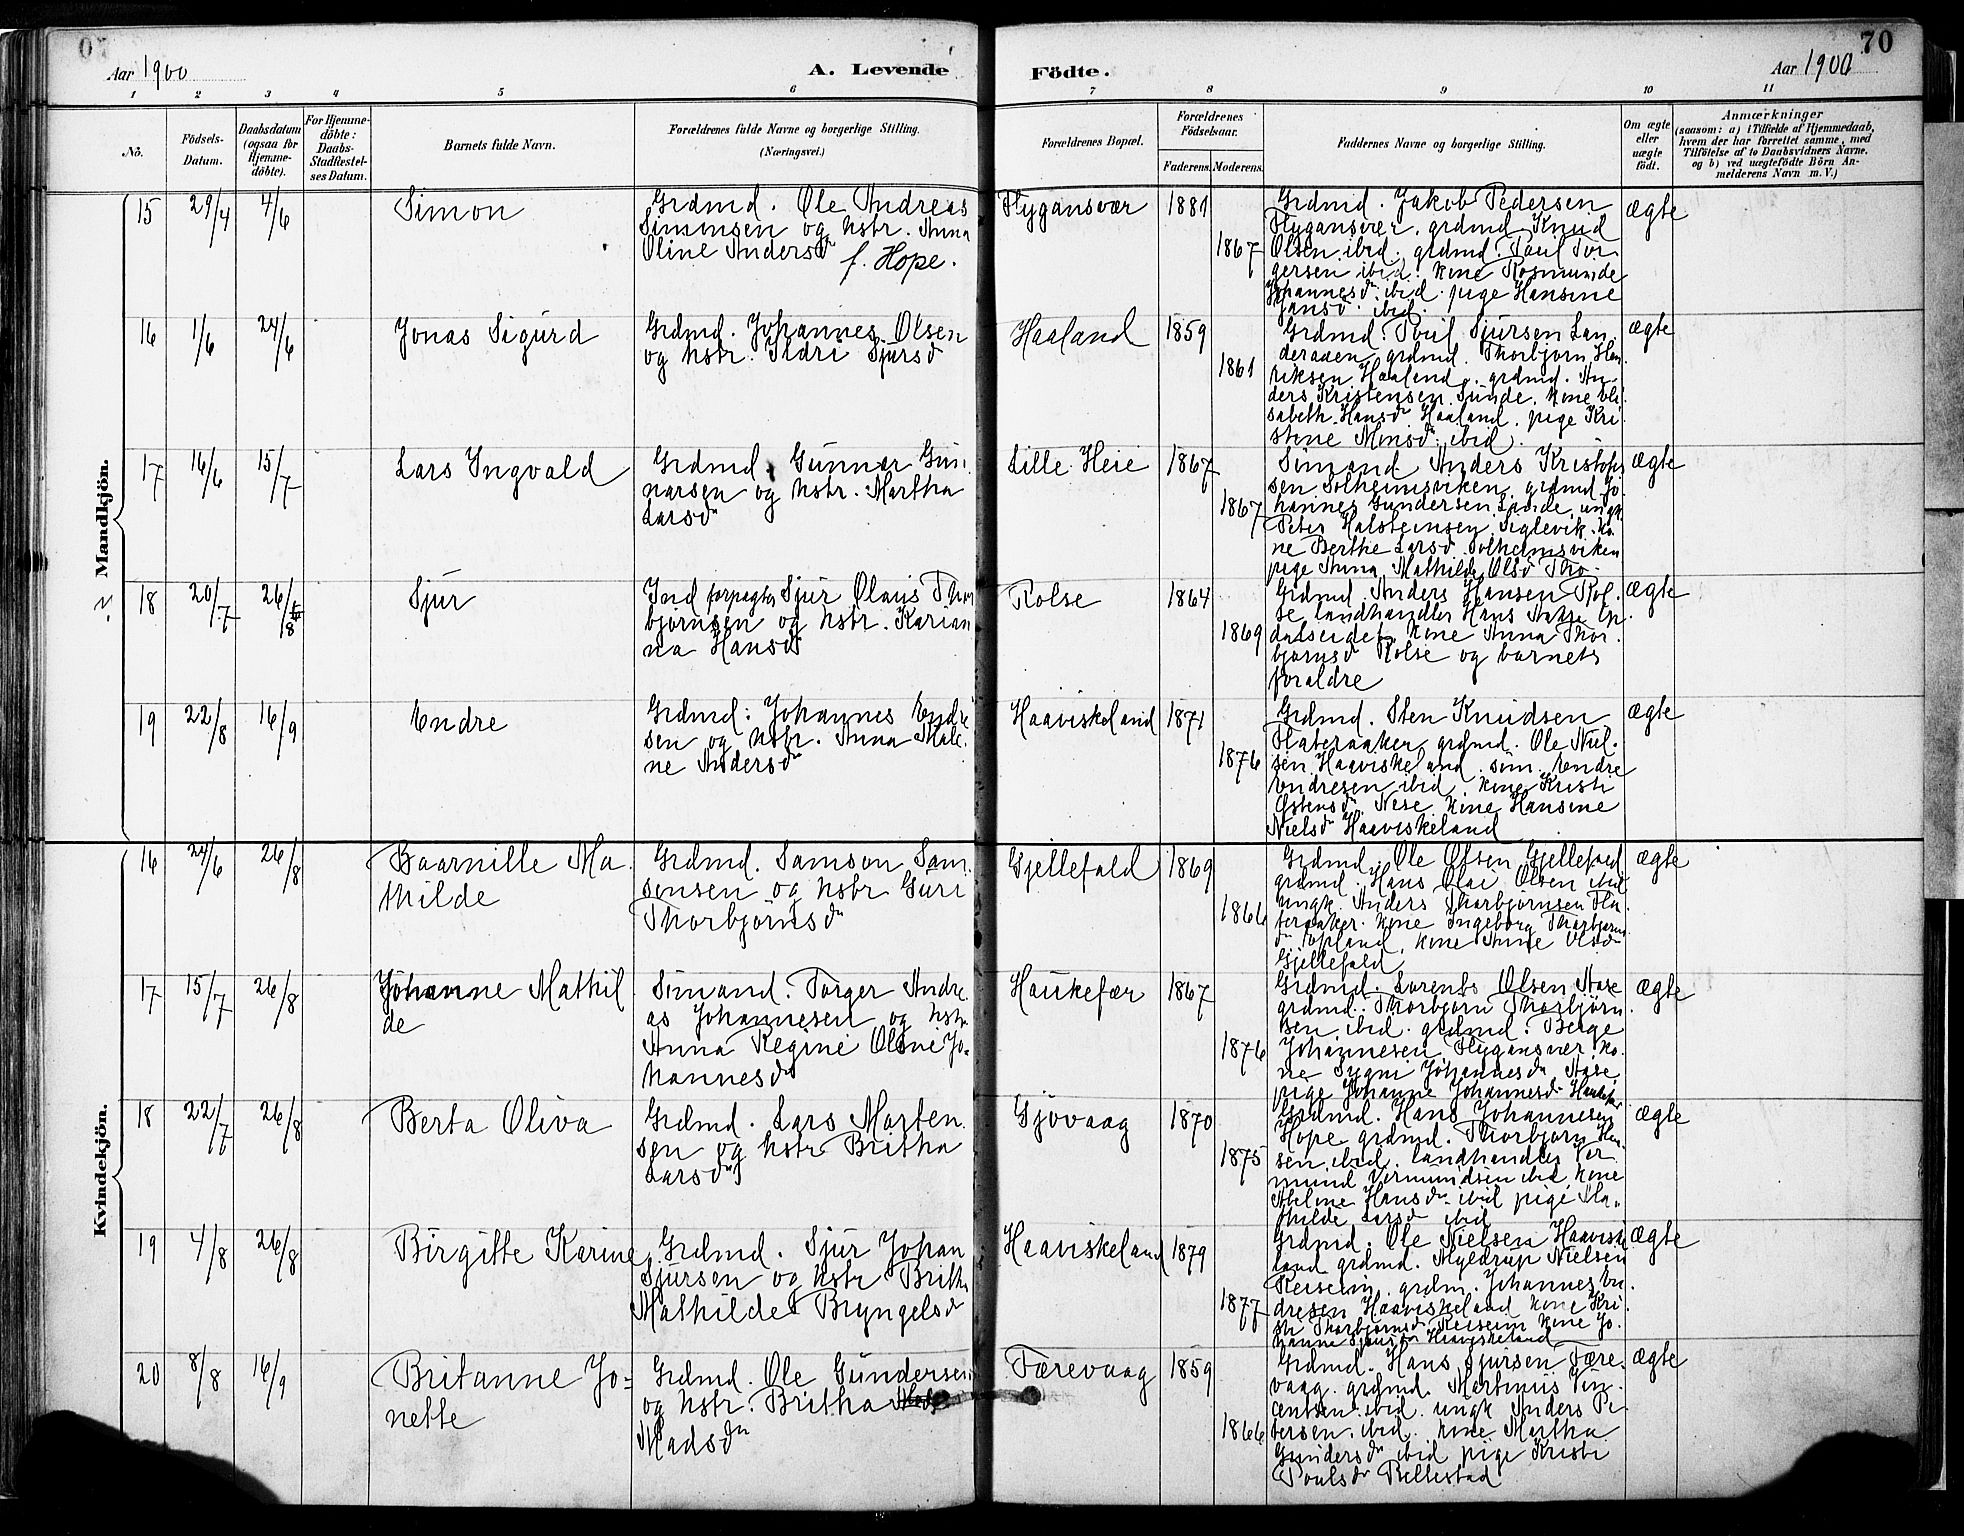 70
Aar 1900
A. Levende
Födte.
Aar 1900
1 2 3 4 5 6 7 8 9 10 11
No.
Födsels-
Datum.
Daabsdatum
(ogsaa for
Hjemme-
döbte).
For Hjemme-
döbte:
Daabs-
Stadfæstel-
ses Datum.
Barnets fulde Navn.
Forældrenes fulde Navne og borgerlige Stilling.
(Næringsvei.)
Forældrenes Bopæl.
Forældrenes
Födselsaar.
Faderens. Moderens.
Faddernes Navne og borgerlige Stilling.
Om ægte
eller
uægte
födt.
Anmærkninger
(saasom: a) i Tilfælde af Hjemmedaab,
hvem der har forrettet samme, med
Tilföielse af to Daabsvidners Navne.
og b) ved uægtefödte Börn An-
melderens Navn m. V.)
Mandkjön.
15
29/4
4/6
Simon
Grdmd. Ole Andreas
Simonsen og hstr. Anna
Oline Andersdr
f. Hope.
Flygansvær
1881
1867
Grdmd. Jakob Pedersen
Flygansvær. grdmd Knud
Olsen ibid. grdmd. Poul Tor-
gersen ibid. kone Rosmunde
Johannesdr ibid. pige Hansine
Jansd. ibid.
ægte
16
1/6
24/6
Jonas Sigurd
Grdmd. Johannes Olsen
og hstr. Sidri Sjursd
Haaland
1859
1861
Grdmd. Poul Sjursen Lan-
deraaen grdmd. Thorbjørn Hen-
riksen Haaland, grdmd. An-
ders Kristensen Sunde, kone Eli-
sabeth Hansdr Haaland. pige Kri-
stine Monsdr. ibid.
ægte
17
16/6
15/7
Lars Ingvald
Grdmd. Gunnar Gun-
narsen og hstr. Martha
Larsdr
Lille Heie
1867
1867
Sømand Anders Kristofer
sen Solheimsviken, grdmd Jo-
hannes Gundersen Sunde, ungk.
Peter Halsteinsen Siglevik. ko-
ne Berthe Larsd. Solheimsviken
pige Anna Mathilde Olsd Tho-
ægte
18
20/7
26/8
Sjur
Ind forpagter Sjur Olaus Thor
bjørnsen og hstr. Karian
na Hansdr
Rolse
1864
1869
Grdmd. Anders Hansen Rol-
se landhandler Hans
dalseidet, kone Anna Thor-
bjørnsd Rolse og barnets
foraldre
ægte
19
22/8
16/9
Endre
Grdmd. Johannes Endre
sen og hstr. Anna Male-
ne Andersdr
Haaviskeland
1871
1876
Grdmd. Sten Knudsen
Flateraaker, grdmd. Ole Niel-
sen Haaviskeland. søm. Endre
Endresen ibid. kone Kristi
Østensdr Nese kone Hansine
Nielsdr Haaviskeland
ægte
Kvindekjön.
16
24/6
26/8
Baarnille Ma-
thilde
Grdmd. Samson Sam-
sonsen og hstr Guri
Thorbjørnsdr
Gjellefald
1869
1866
Grdmd. Ole Olsen Gjellefald
grdmd. Hans Olai Olsen ibid
ungk. Anders Thorbjørnsen Fla-
teraaker. kone Ingeborg Thorbjørns
dr Opland, kone Anne Olsdr
Gjellefald
ægte
17
15/7
26/8
Johanne Mathil
de
Sømand. Torger Andre-
as Johannesen og hstr.
Anna Regine Olsine Jo-
hannesdr
Haukefær
1867
1876
Grdmd. Lorents Olsen Aase
grdmd. Thorbjørn Thorbjørn-
sen ibid. grdmd. Berge
Johannesen Flygansvær. ko-
ne Sygni Johannesdr Aase
pige Johanne Johannesdr Haukefær
ægte
18
22/7
26/8
Berta Oliva
Grdmd. Lars Morten-
sen og hstr Britha
Larsdr
Gjøvaag
1870
1875
Grdmd. Hans Johannesen
Hope grdmd. Thorbjørn Han-
sen ibid. landhandler Ver-
mund Vermundsen ibid. kone
Abeline Hansdr. ibid pige Ma-
thilde Larsd ibid
ægte
19
4/8
26/8
Birgitte Karine
Grdmd. Sjur Johan
Sjursen og hstr Britha
Mathilde Bryngelsd
Haaviskeland
1879
1877
Grdmd. Ole Nielsen Haaviske
land grdmd. Myldrup Nielsen
Reiseim. grdm. Johannes En-
dresen Haaviskeland kone Kri-
sti Thorbjørnsd Reiseim kone Jo-
hanne Haaviskeland
ægte
20
8/8
16/9
Britanne Jo-
nette
Grdmd. Ole Gundersen
og hstr. Britha
Madsdr
Færevaag
1859
1866
Grdmd. Hans Sjursen Fære-
vaag. grdmd Martinus Vin-
centsen ibid. ungk Anders Pe-
tersen ibid. kone Martha
Gundersdr ibid pige Kristi
Poulsdr Rellestad
ægte